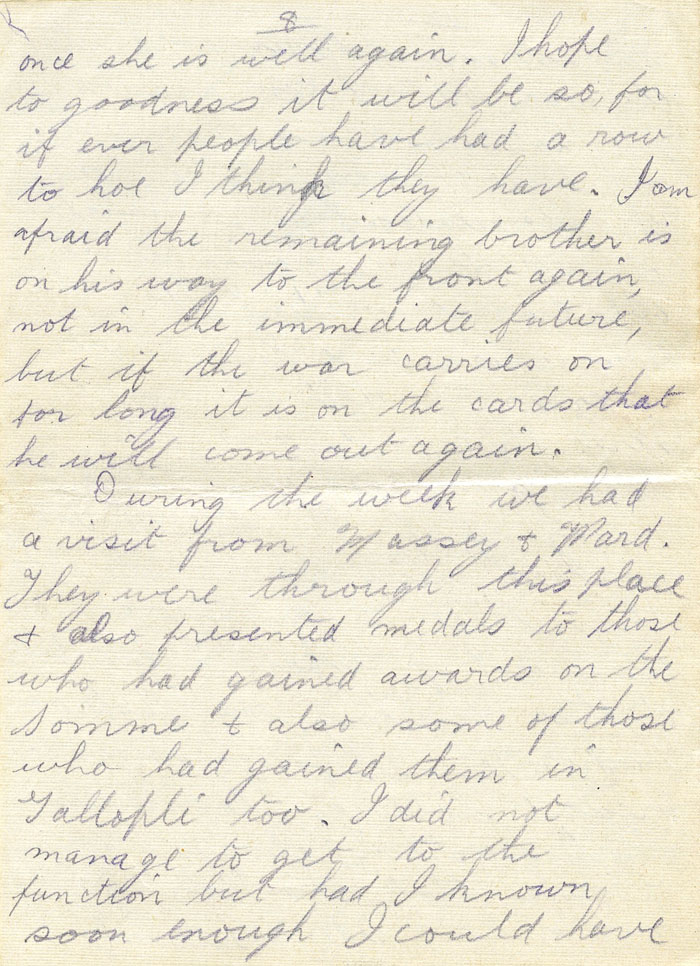 8
once she is well again. I hope
to goodness it will be so, for
if ever people have had a row
to hoe I think they have. I am
afraid the remaining brother is
on his way to the front again,
not in the immediate future,
but if the war carries on
for long it is on the cards that
he will come out again.
During the week we had
a visit from Massey & Ward.
They were through this place
& also presented medals to those
who had gained awards on the
Somme & also some of those
who had gained them in
Gallopli too. I did not
manage to get to the
function but had I known
soon enough I could have